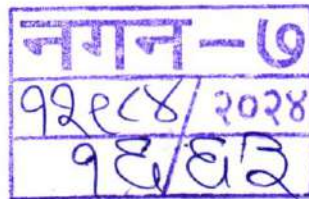 नगन - ७
१२९८४/२०२४
१६/६३